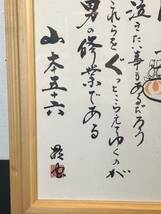 泣きたい事もあるだろう
これらをぐっとこらえてゆくのが
男の修業である
山本五十六